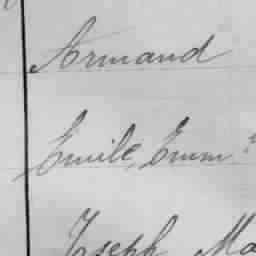 Armand
Emile, Emm.
Joseph Ma